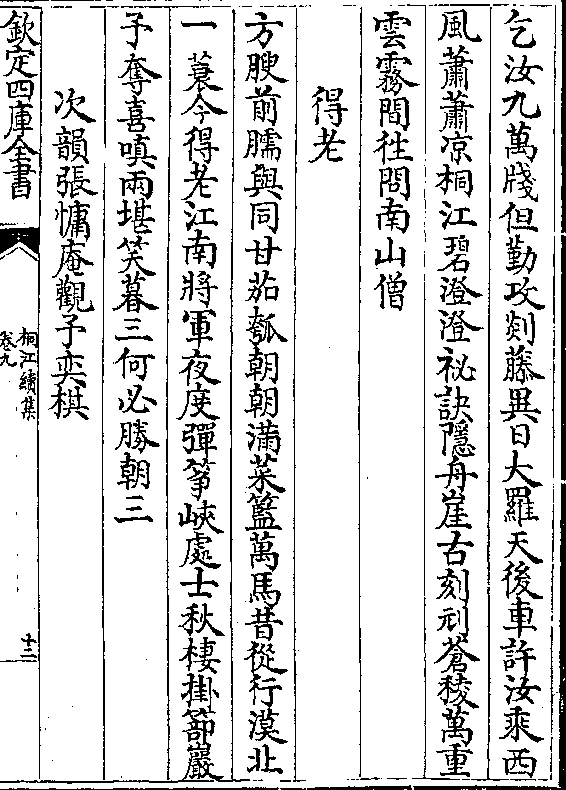 乞汝九萬牋但勤攻剡藤異日大羅天後車許汝乘西
風蕭蕭凉桐江碧澄澄祕訣隱舟崖古刻刓蒼稜萬重
雲霧間往問南山僧
得老
方腴前臑與同甘茄瓠朝朝滿菜籃萬馬昔從行漠北
一蓑今得老江南將軍夜度彈筝峽處士秋棲掛䇶巖
予奪喜嗔兩堪笑暮三何必勝朝三
次韻張慵庵觀予奕棋
欽定四庫全書
桐江續集
卷九
十三